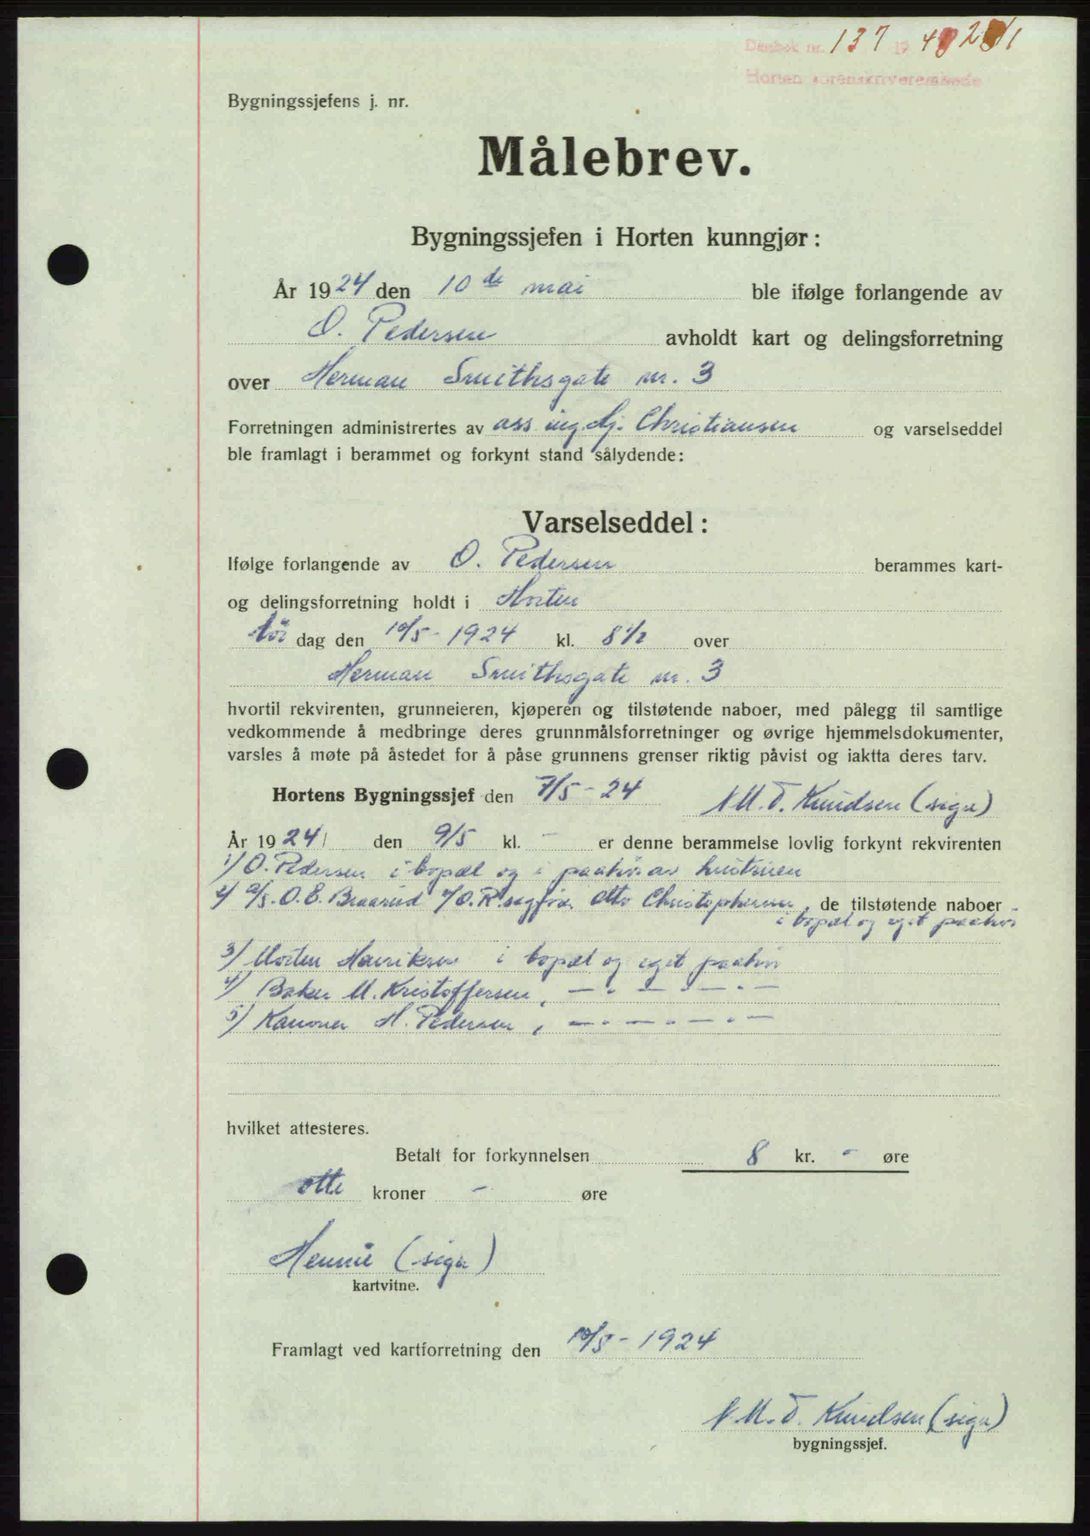 Dagbok nr. 137 19 48 2 1
Horten sorenskriverembede
Bygningssjefens j. nr.
Målebrev.
Bygningssjefen i Horten kunngjør:
År 1924 den 10de mai ble ifølge forlangende av
O. Pedersen avholdt kart og delingsforretning
over Herman Smithsgate nr. 3
Forretningen administrertes av ass. ing. Christiansen og varselseddel
ble framlagt i berammet og forkynt stand sålydende:
Varselseddel:
Ifølge forlangende av O. Pedersen berammes kart-
og delingsforretning holdt i Horten
lør dag den 10/5 - 1924 kl. 8 1/2 over
Herman Smithsgate nr. 3
hvortil rekvirenten, grunneieren, kjøperen og tilstøtende naboer, med pålegg til samtlige
vedkommende å medbringe deres grunnmålsforretninger og øvrige hjemmelsdokumenter,
varsles å møte på åstedet for å påse grunnens grenser riktig påvist og iaktta deres tarv.
Hortens Bygningssjef den 7/5 - 24 N. M. T. Knudsen (sign)
År 1924 den 9/5 kl. - er denne berammelse lovlig forkynt rekvirenten
1/ O. Pedersen i bopæl og i paahør av hustruen
2/ A/S. O. E. Braarud v/ O. R. sagfør. Otto Christophersen, de tilstøtende naboer
i bopæl og eget paahør
3/ Morten Henriksen i bopæl og eget paahør
4/ Baker M. Kristoffersen, — " — " —
5/ Kanoner H. Pedersen, — " — " —
hvilket attesteres.
Betalt for forkynnelsen 8 kr. - øre
otte kroner - øre
Hennie (sign)
kartvitne.
Framlagt ved kartforretning den 10/5 - 1924
N. M. T. Knudsen (sign)
bygningssjef.